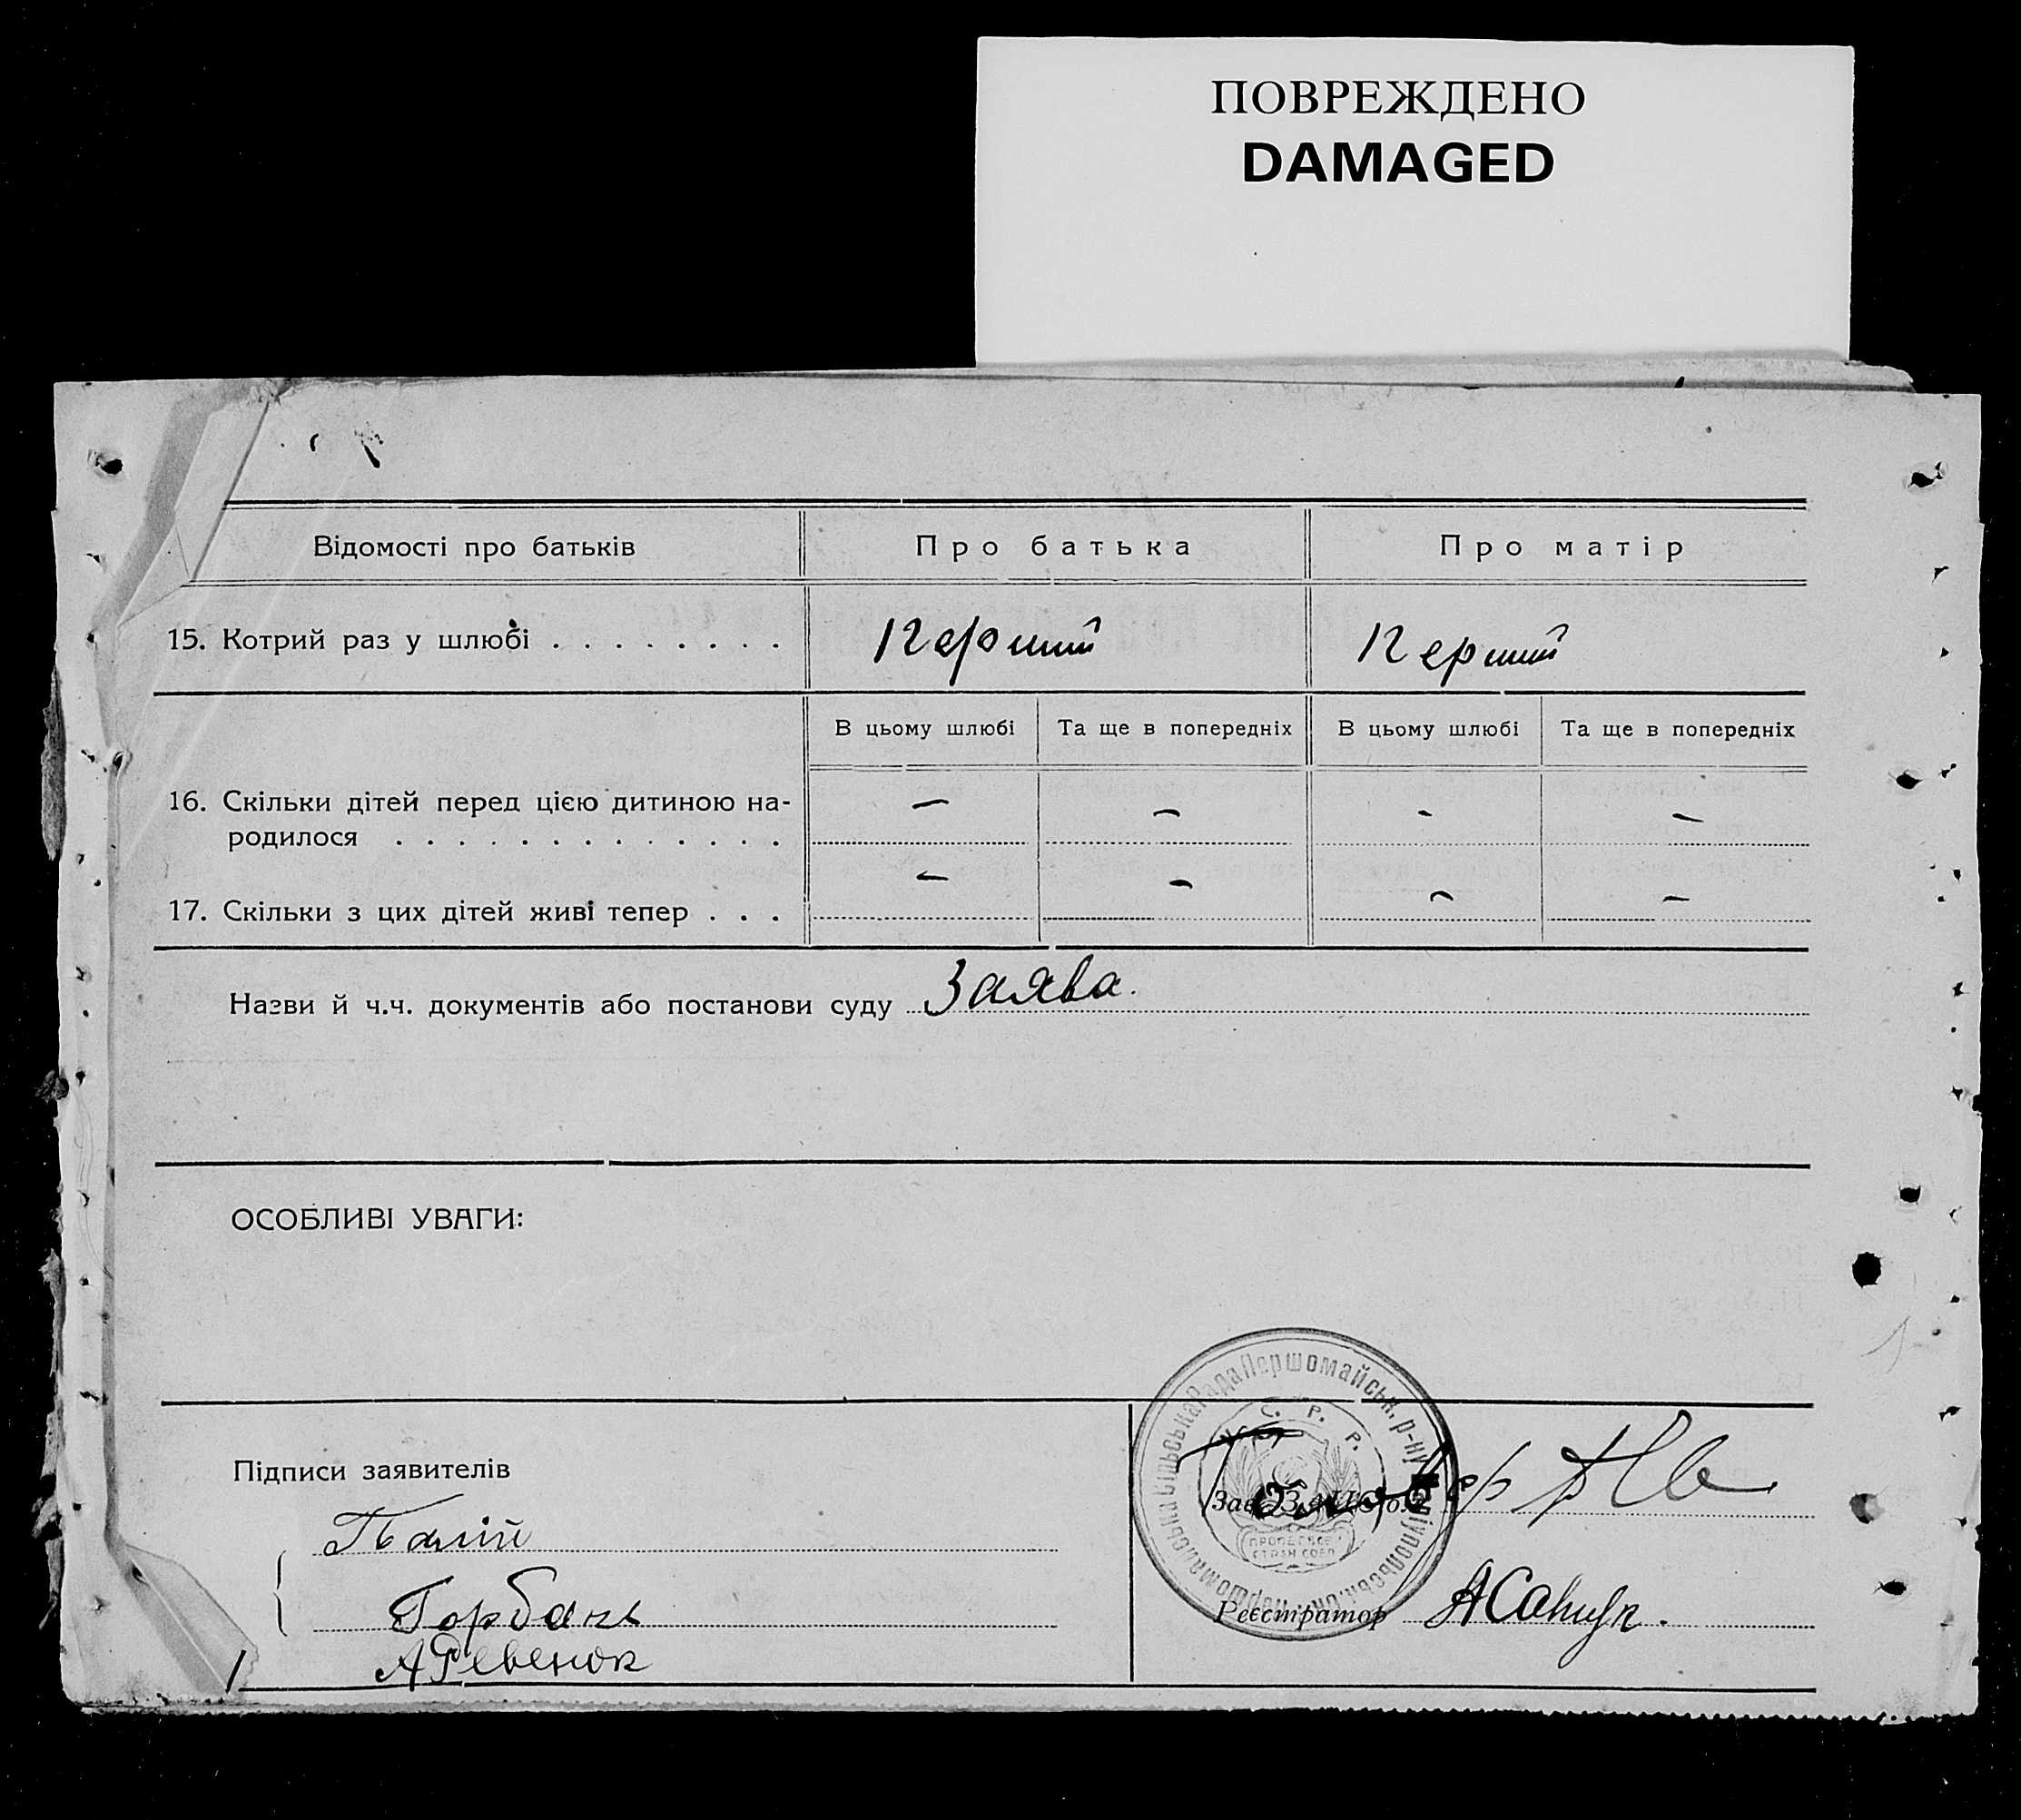 ПОВРЕЖДЕНО
DAMAGED
Відомості про батьків
Про батька
Про матір
15. Котрий раз у шлюбі . . . . . . . .
Перший
Перший
В цьому шлюбі
Та ще в попередніх
В цьому шлюбі
Та ще в попередніх
16. Скільки дітей перед цією дитиною на-
родилося . . . . . . . . . . . . .
— — - —
17. Скільки з цих дітей живі тепер . . .
— — — —
Назви й ч.ч. документів або постанови суду Заява.
ОСОБЛИВІ УВАГИ:
Підписи заявителів
Палій
Горбань
А Ревенок
Першомайська Сільська Рада Першомайськ. р-ну
У. С. Р. Р.
Зав. ЗАЦС'ом
Реєстратор